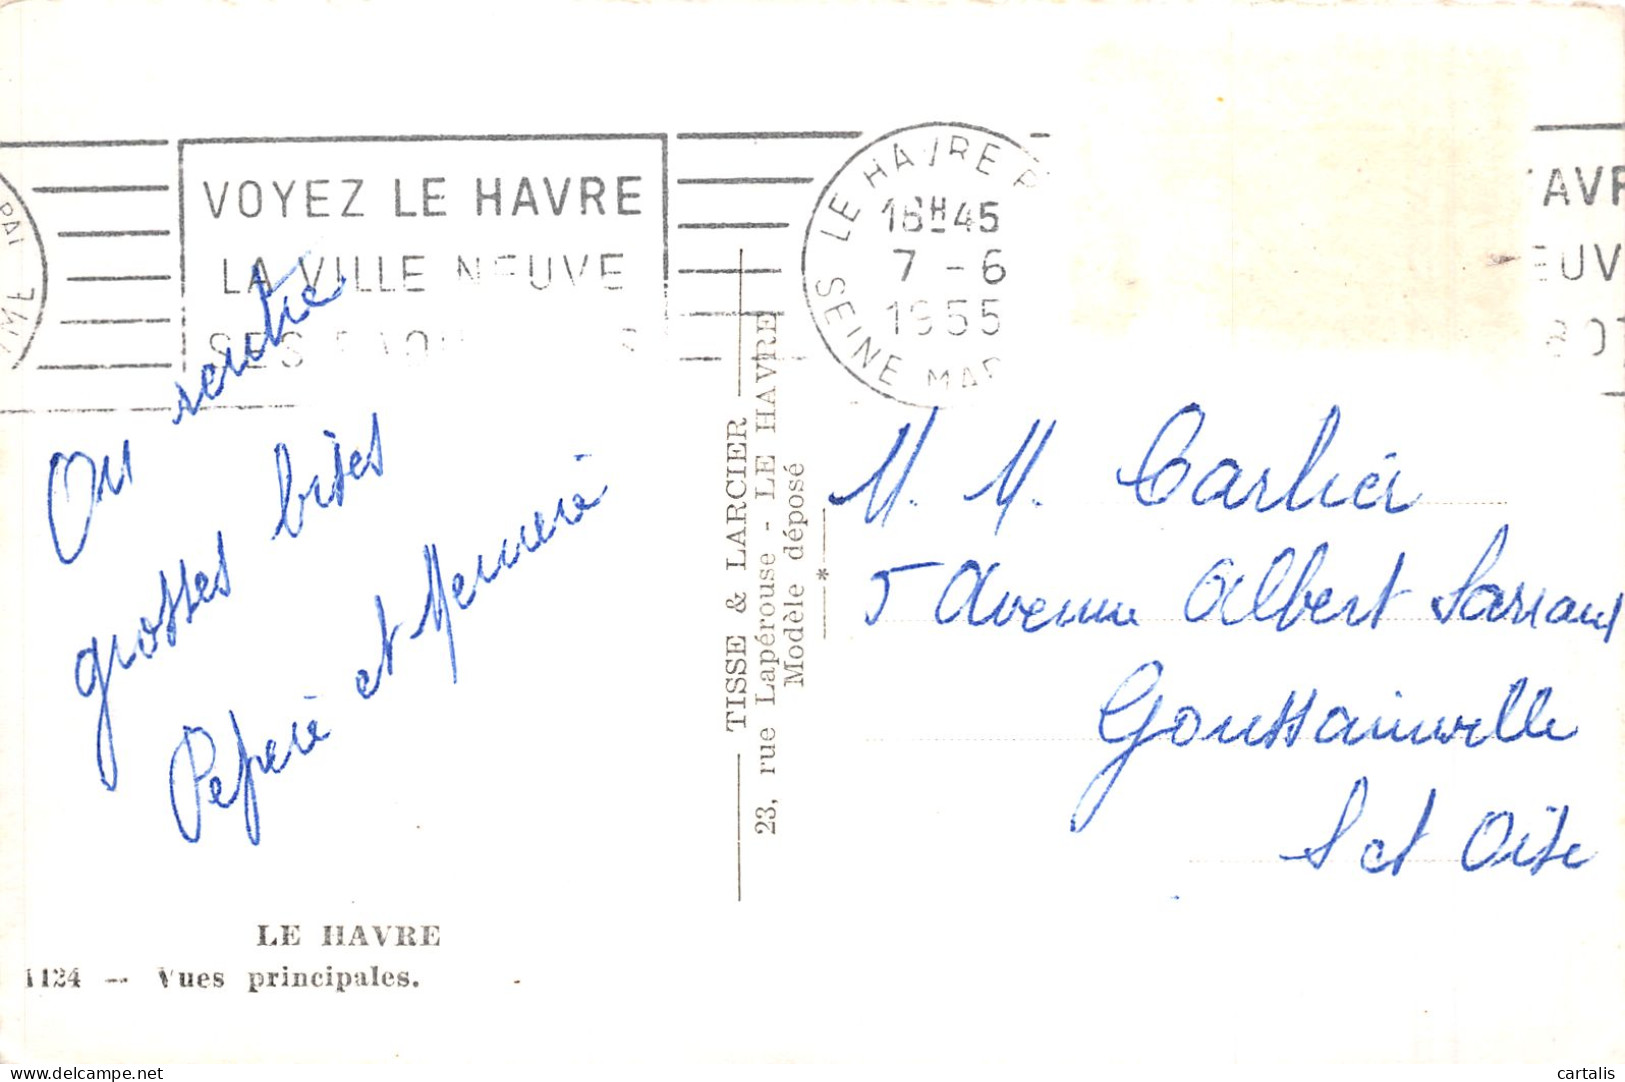 VOYEZ LE HAVRE
LA VILLE NEUVE
SES
LE HAVRE P
16H45
7 - 6
1955
SEINE MAR
On rentre
grosses bises
Pepère et Memere
LE HAVRE
1124 — Vues principales.
TISSE & LARCIER
23, rue Lapérouse - LE HAVRE
Modèle déposé
*
M. M. Carlier
5 Avenue Albert Sarraut
Goussainville
S et Oise
delcampe.net
cartalis